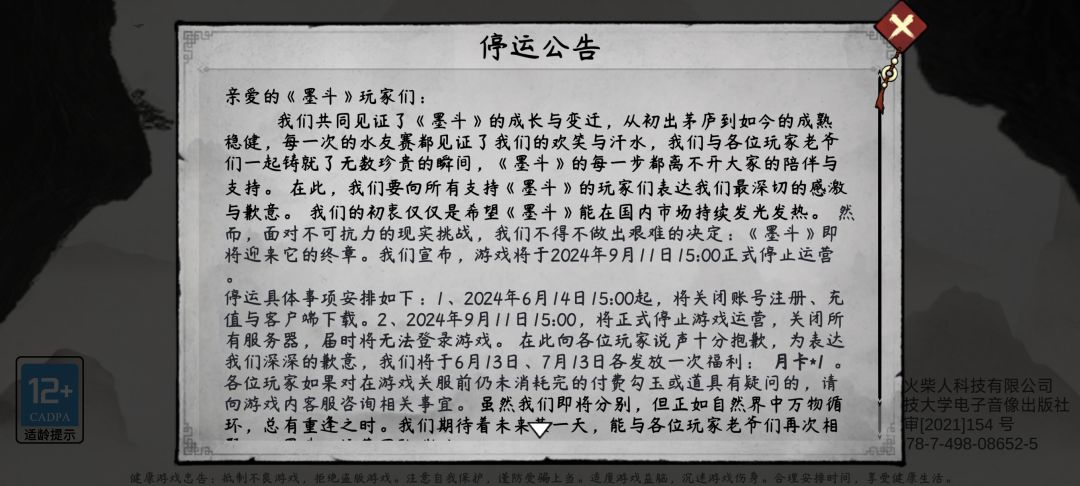 停运公告
亲爱的《墨斗》玩家们：
我们共同见证了《墨斗》的成长与变迁，从初出茅庐到如今的成熟
稳健，每一次的水友赛都见证了我们的欢笑与汗水，我们与各位玩家老爷
们一起铸就了无数珍贵的瞬间，《墨斗》的每一步都离不开大家的陪伴与
支持。 在此，我们要向所有支持《墨斗》的玩家们表达我们最深切的感激
与歉意。 我们的初衷仅仅是希望《墨斗》能在国内市场持续发光发热。 然
而，面对不可抗力的现实挑战，我们不得不做出艰难的决定：《墨斗》即
将迎来它的终章。我们宣布，游戏将于2024年9月11日15:00正式停止运营
。
停运具体事项安排如下：1、2024年6月14日15:00起，将关闭账号注册、充
值与客户端下载。2、2024年9月11日15:00，将正式停止游戏运营，关闭所
有服务器，届时将无法登录游戏。 在此向各位玩家说声十分抱歉，为表达
我们深深的歉意，我们将于6月13日、7月13日各发放一次福利： 月卡*1 。
各位玩家如果对在游戏关服前仍未消耗完的付费勾玉或道具有疑问的，请
向游戏内客服咨询相关事宜。 虽然我们即将分别，但正如自然界中万物循
环，总有重逢之时。我们期待着未来某一天，能与各位玩家老爷们再次相
12+
CADPA
适龄提示
火柴人科技有限公司
技大学电子音像出版社
审[2021]154 号
78-7-498-08652-5
健康游戏忠告：抵制不良游戏，拒绝盗版游戏。注意自我保护，谨防受骗上当。适度游戏益脑，沉迷游戏伤身。合理安排时间，享受健康生活。